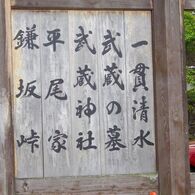 一貫清水
武蔵の墓
武蔵神社
平尾家
鎌坂峠